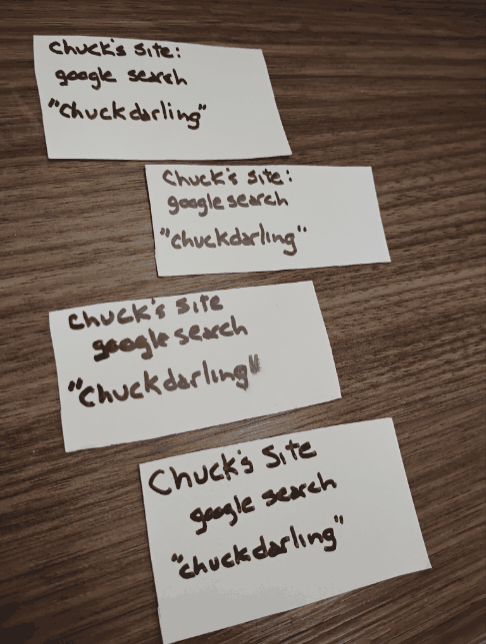 Chuck's Site:
google search
"chuckdarling"
Chuck's Site:
google search
"chuckdarling"
Chuck's Site
google search
"chuckdarling"
Chuck's Site
google search
"chuckdarling"